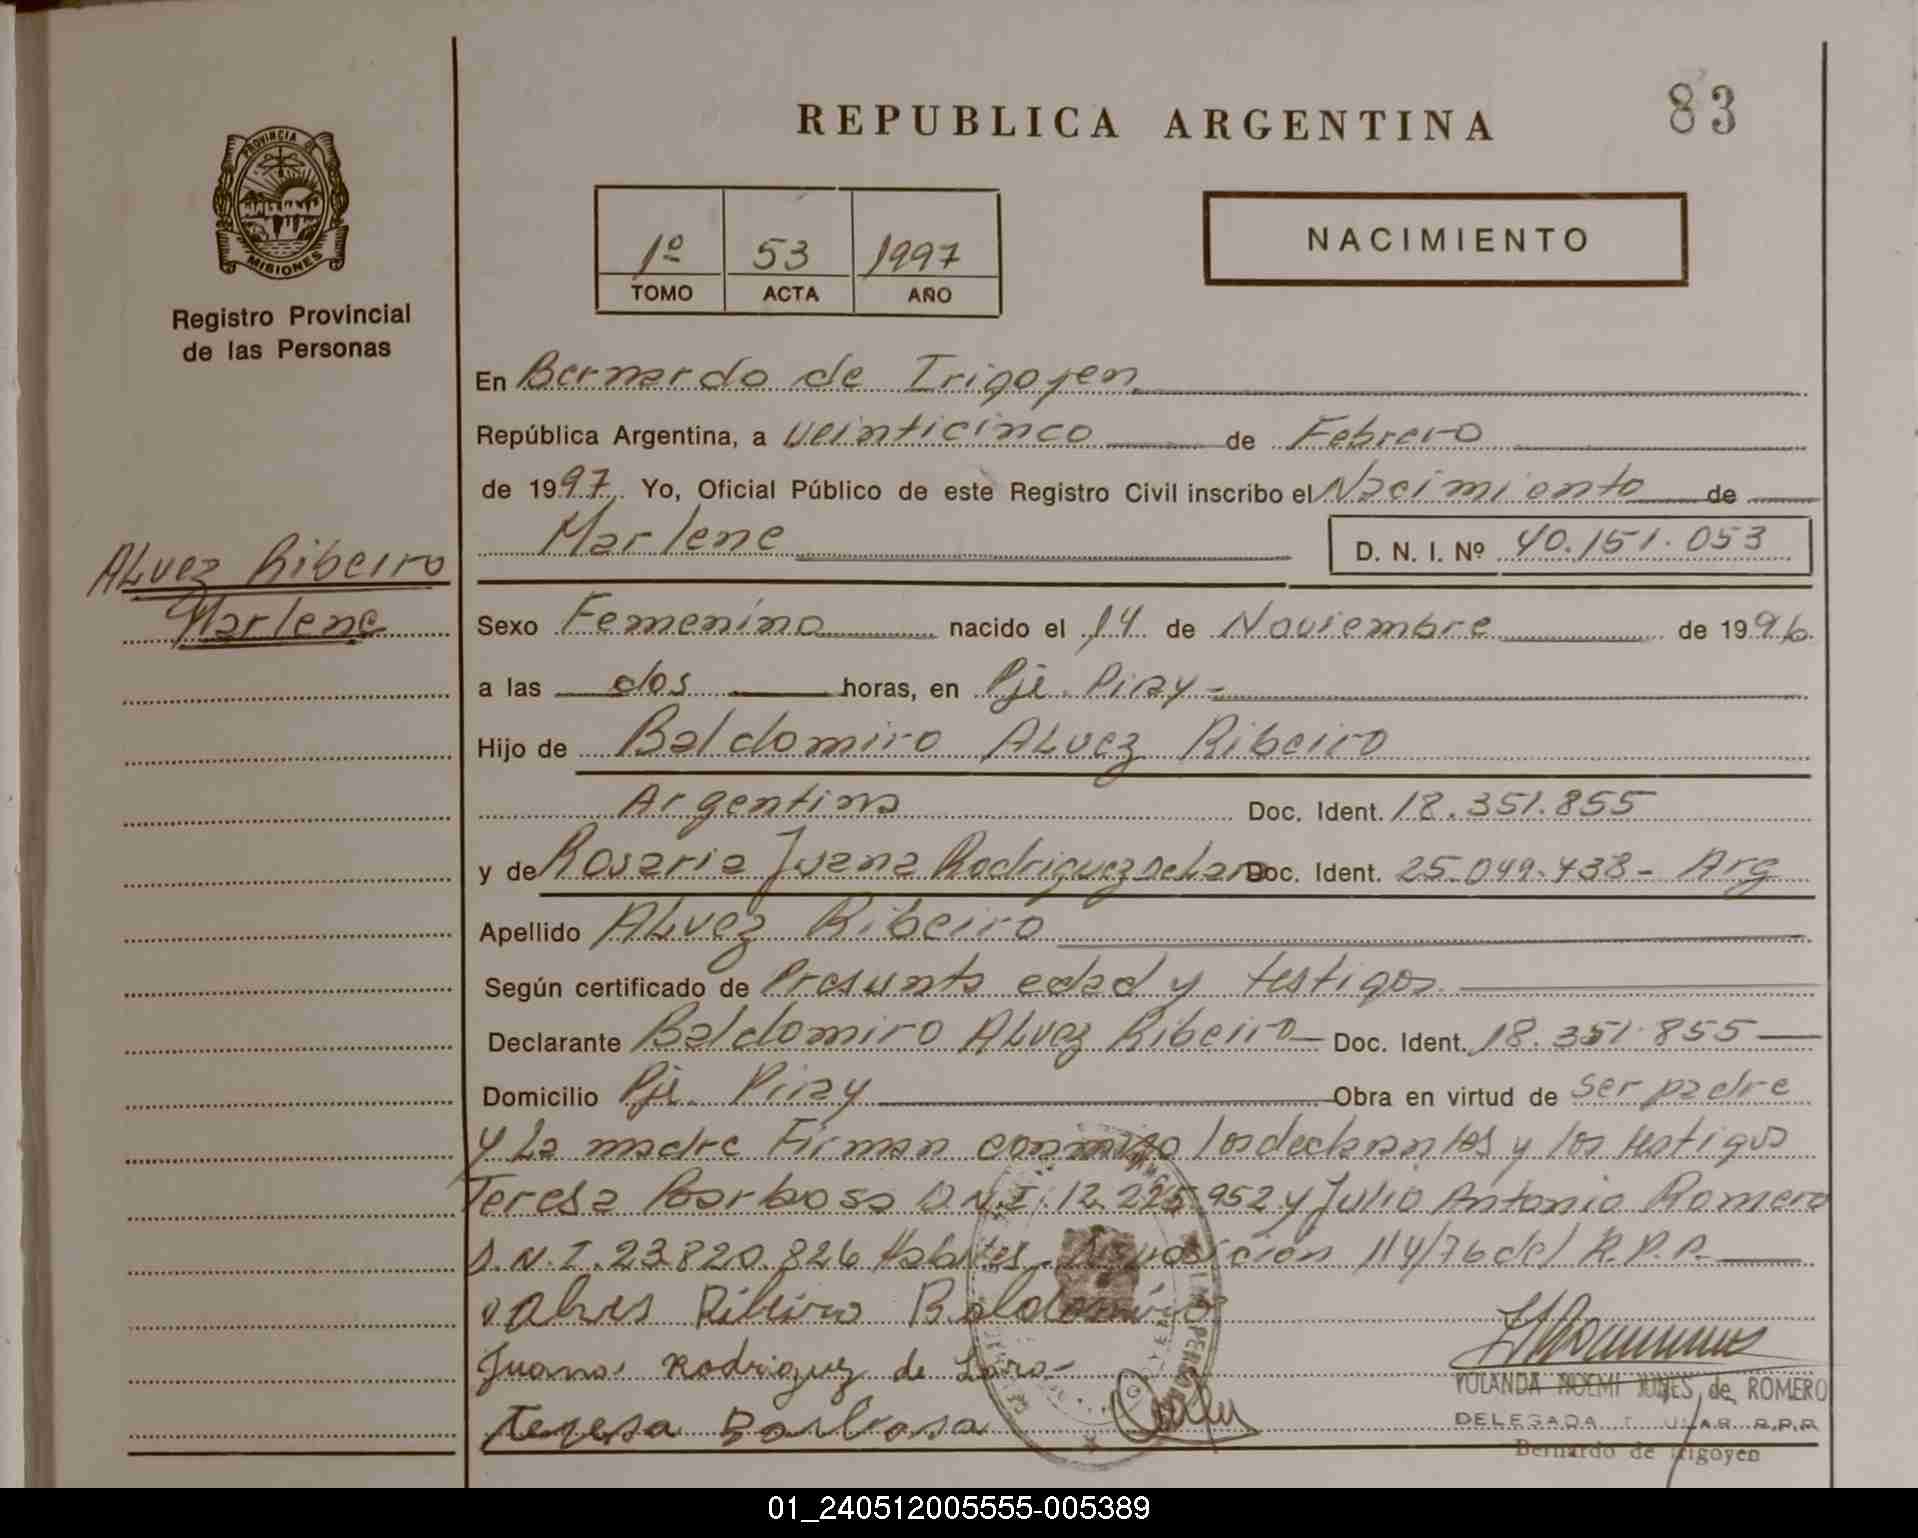 REPUBLICA ARGENTINA
83
PROVINCIA DE
MISIONES
Registro Provincial
de las Personas
1º 53 1997
TOMO ACTA AÑO
NACIMIENTO
En Bernardo de Irigoyen
República Argentina, a veinticinco de Febrero
de 1997 Yo, Oficial Público de este Registro Civil inscribo el Nacimiento de
Marlene D. N. I. Nº 40.151.053
ALvez Ribeiro
Marlene
Sexo Femenino nacido el 14 de Noviembre de 1996
a las dos horas, en Pje. Piray
Hijo de Baldomiro ALvez Ribeiro
Argentina Doc. Ident. 18.351.855
y de Rosaria Juana Rodriguez De Lara Doc. Ident. 25.049.438 - Arg
Apellido ALvez Ribeiro
Según certificado de Presunta edad y testigos
Declarante Baldomiro ALvez Ribeiro Doc. Ident. 18.351.855
Domicilio Pje. Piray Obra en virtud de ser padre
y La madre Firman conmigo los declarantes y los testigos
Teresa Barbosa D.N.I. 12.225.952 y Julio Antonio Romero
D.N.I. 23.820.826 Habiles. Disposicion 114/76 del R.P.P.
Ribeiro Baldomiro
Juana Rodriguez de Lara
Teresa Barbosa
YOLANDA NOEMI de ROMERO
DELEGADA TITULAR R.P.P.
Bernardo de Irigoyen
01_240512005555-005389